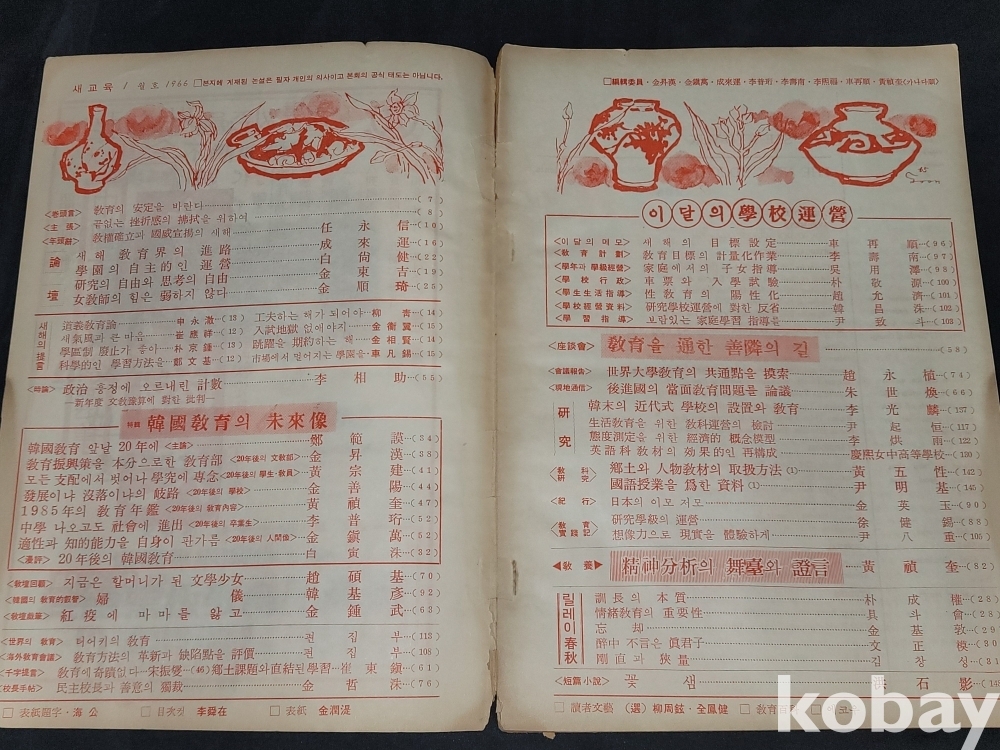 새교육 1월호 1966 □본지에 게재된 논설은 필자 개인의 의사이고 본회의 공식 태도는 아닙니다.
<卷頭言> 敎育의 安定을 바란다 (7)
<主張> 끝없는 挫折感의 拂拭을 위하여 (8)
<年頭辭> 敎權確立과 國威宣揚의 새해 任永信 (10)
論壇
새해 敎育界의 進路 成來運 (16)
學園의 自主的인 運營 白尙健 (22)
硏究의 自由와 思考의 自由 金東吉 (19)
女敎師의 힘은 弱하지 않다 金順琦 (25)
새해의 提言
道義敎育論 申永澈 (13) 工夫하는 해가 되어야 柳靑 (14)
새氣風과 큰 마음 崔應祥 (12) 入試地獄 없애야지 金衡翼 (15)
學區制 廢止가 좋아 朴京鍾 (13) 跳躍을 期約하는 해 金相賢 (14)
科學的인 學習方法을 鄭文基 (12) 市場에서 멀어지는 學園을 車凡錫 (15)
<時論> 政治 흥정에 오르내린 計數 李相助 (55)
—新年度 文敎豫算에 對한 批判—
特輯 韓國敎育의 未來像
韓國敎育 앞날 20年에 <主論> 鄭範謨 (34)
敎育振興策을 本分으로한 敎育部 <20年後의 文敎部> 金昇漢 (38)
모든 支配에서 벗어나 學究에 專念 <20年後의 學生·敎員> 黃宗建 (41)
發展이냐 沒落이냐의 岐路 <20年後의 學校> 金善陽 (44)
1985年의 敎育年鑑 <20年後의 敎育內容> 黃禎奎 (47)
中學 나오고도 社會에 進出 <20年後의 卒業生> 李普珩 (52)
適性과 知的能力을 自身이 판가름 <20年後의 人間像> 金鎭萬 (52)
20年後의 韓國敎育 白寅洙 (32)
<敎壇回顧> 지금은 할머니가 된 文學少女 趙碩基 (70)
婦儀 韓基彦 (92)
紅疫에 마마를 앓고 金鍾武 (63)
<世界의 敎育> 터어키의 敎育 편집부 (113)
<海外敎育會議> 敎育方法의 革新과 缺陷點을 評價 편집부 (108)
<千字提言> 敎育에 奇蹟없다 宋振燮 (46) 鄕土課題와 直結된 學習 崔東鎭 (61)
<校長手帖> 民主校長과 善意의 獨裁 金哲洙 (76)
□表紙題字·海公 □目次컷 李舜在 □表紙 金潤湜
□編輯委員·金丹溪·金鎭萬·成來運·李普珩·李壽南·李熙福·車再順·黃禎奎<가나다順>
이달의 學校運營
<이달의 메모> 새해의 目標設定 車再順 (96)
<敎育計劃> 敎育目標의 計量化作業 李壽南 (97)
<學年과 學級經營> 家庭에서의 子女指導 吳用澤 (98)
<學校行政> 車票와 入學試驗 朴敬源 (100)
<學生生活指導> 性敎育의 陽性化 趙允濟 (101)
<學校經營資料> 硏究學校運營에 對한 反省 韓昌洙 (102)
<學習指導> 보람있는 家庭學習 指導를 尹致斗 (103)
<座談會> 敎育을 通한 善隣의 길 (58)
<會議報告> 世界大學敎育의 共通點을 摸索 趙永植 (74)
<現地通信> 後進國의 當面敎育問題를 論議 朱世煥 (66)
硏究
韓末의 近代式 學校의 設置와 敎育 李光麟 (127)
生活敎育을 위한 敎科運營의 檢討 尹起恒 (117)
態度測定을 위한 經濟的 槪念模型 李烘雨 (122)
英語科 敎材의 効果的인 再構成 慶熙女中高等學校 (130)
敎科硏究
鄕土와 人物敎材의 取扱方法(1) 黃五性 (142)
國語授業을 爲한 資料(1) 尹明基 (145)
<紀行> 日本의 이모저모 金英玉 (90)
敎育實踐記
硏究學級의 運營 徐健錫 (88)
想像力으로 現實을 體驗하게 尹八重 (105)
◀敎養▶ 精神分析의 舞臺와 證言 黃禎奎 (82)
릴레이 春秋
訓長의 本質 朴成權 (28)
情緖敎育의 重要性 具斗會 (28)
忘却 金基敦 (29)
醉中不言은 眞君子 文正模 (30)
剛直과 狹量 김창성 (31)
<短篇小說> 꽃샘 洪石影 (148)
□讀者文藝 (選) 柳周鉉·全鳳健
kobay